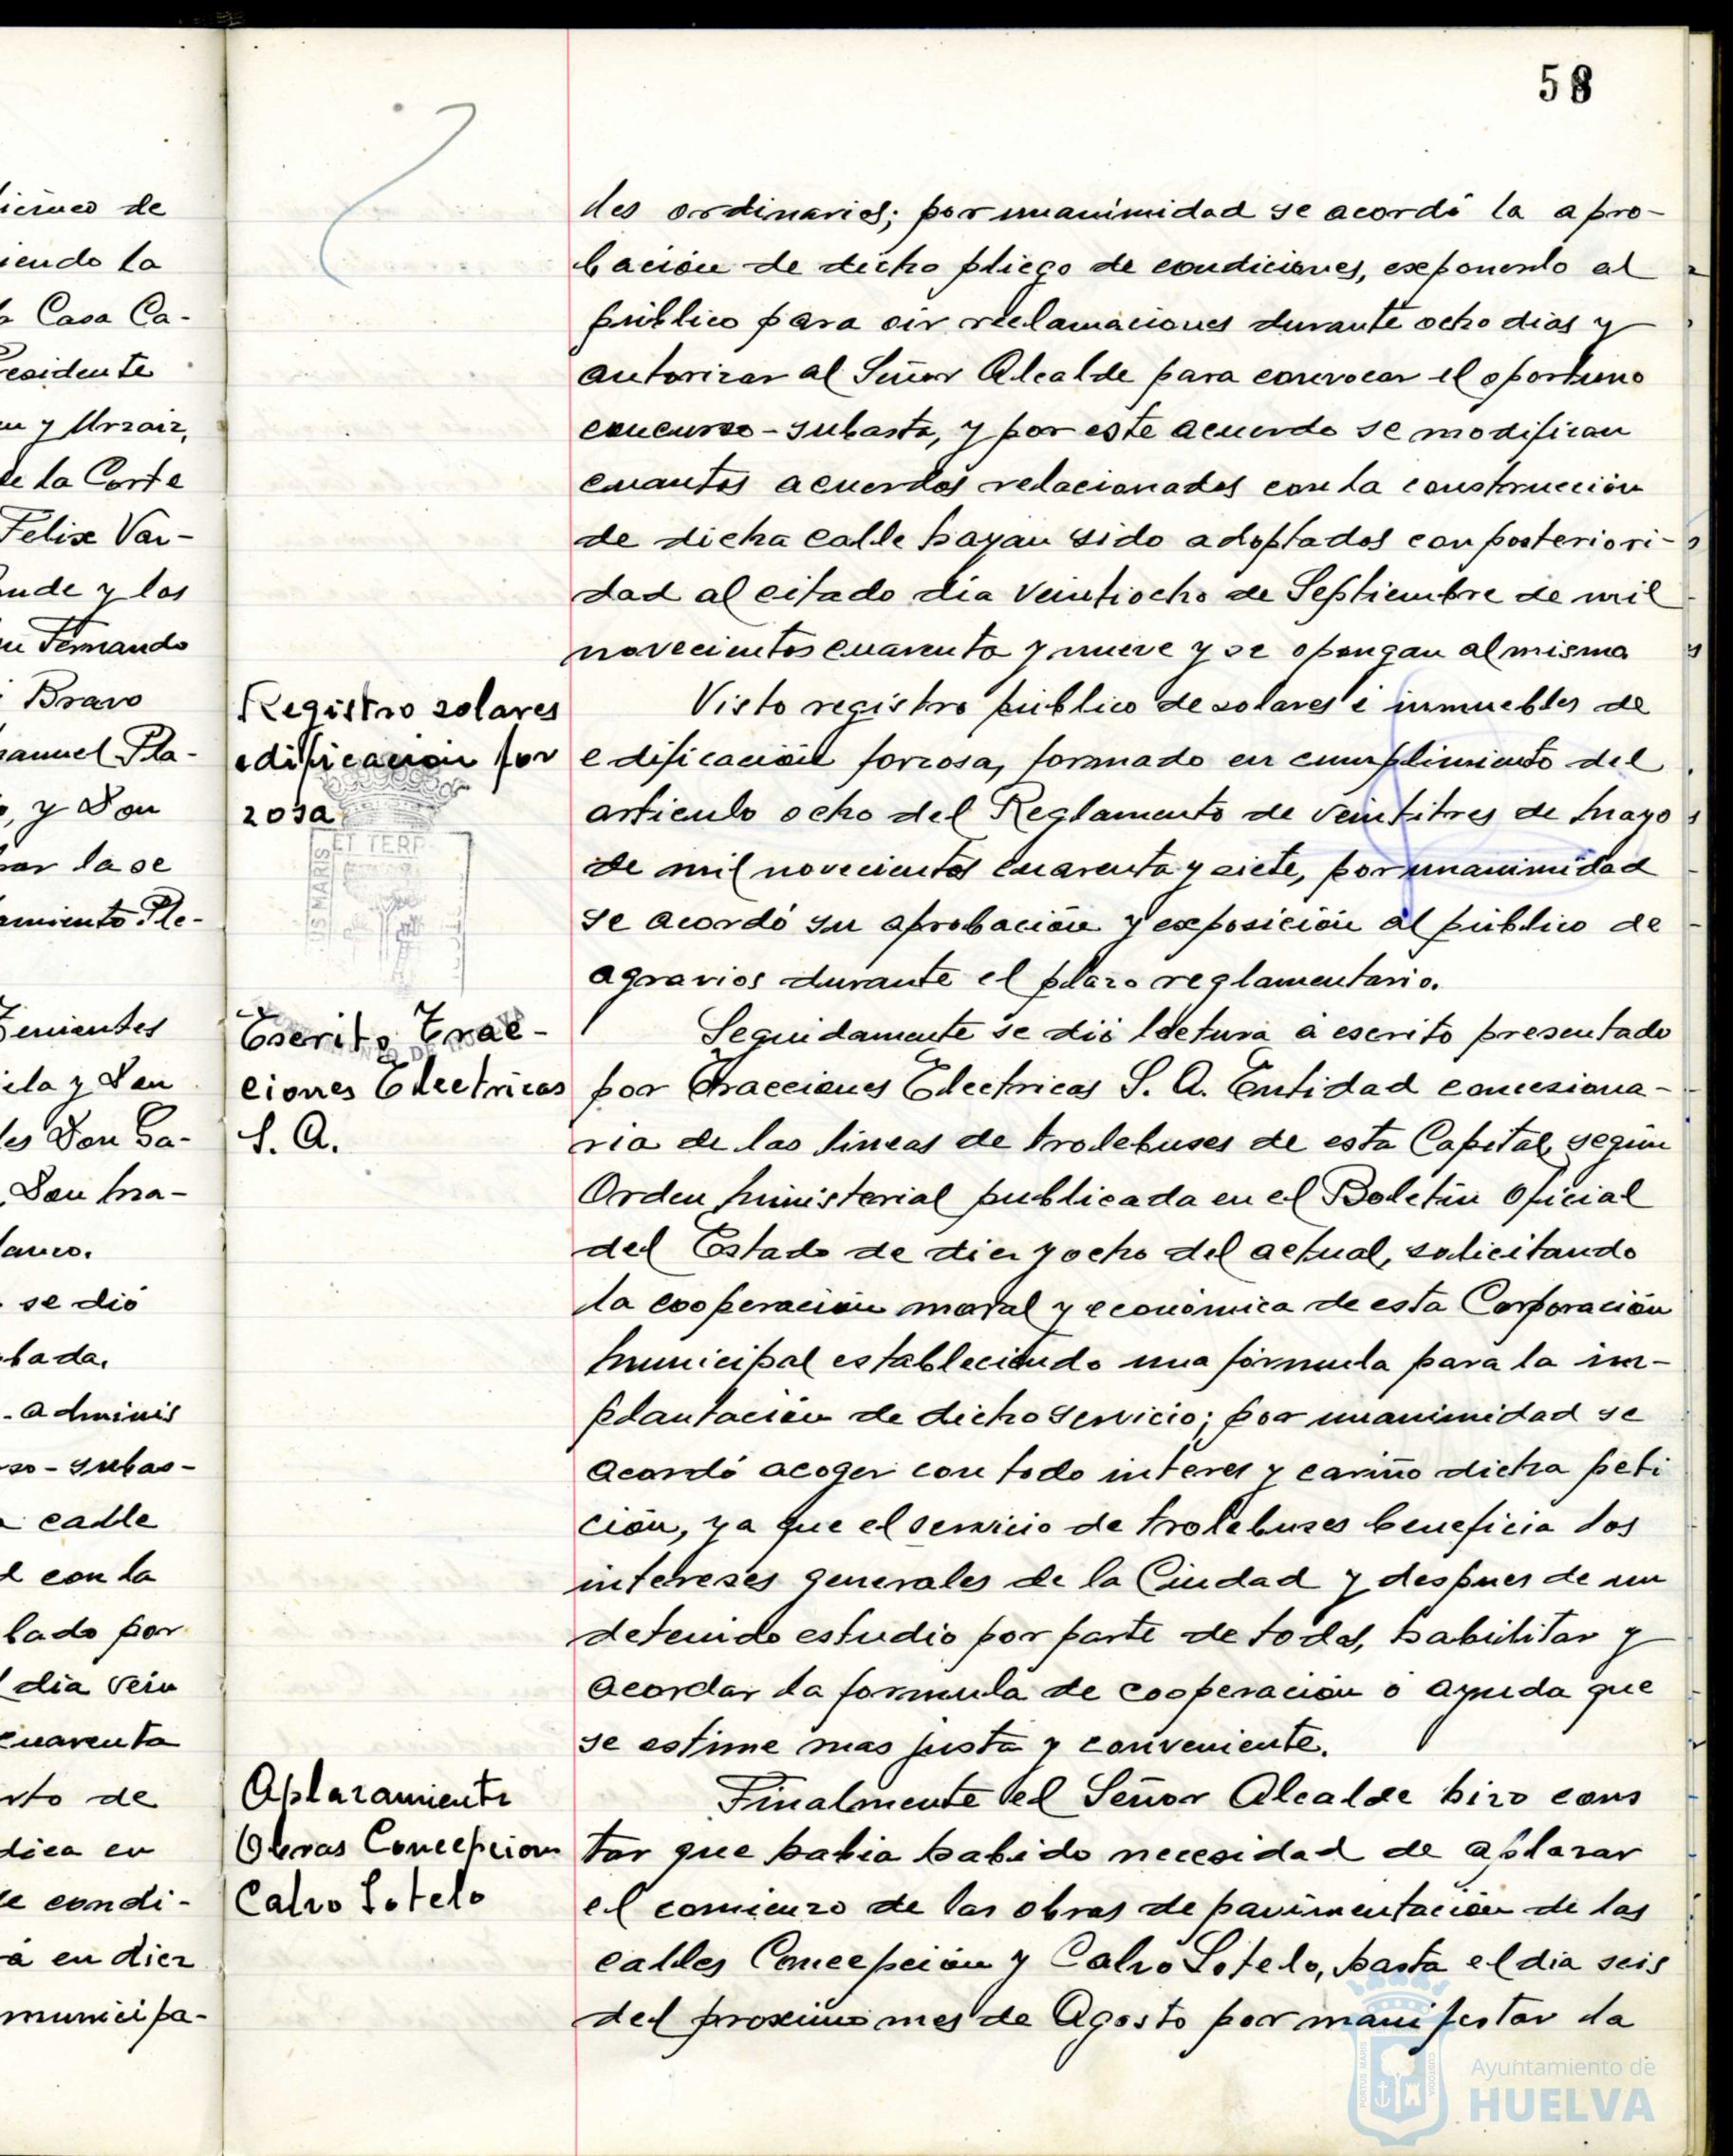 58
iéndo de
iendo la
a Casa Ca-
residente
n y Urzaiz,
de la Corte
Felix Var-
ande y los
n Fernando
Bravo
anuel Pla-
o, y Don
rar la se
amiento Ple-
Tenientes
ila y Don
les Don Ga-
Don Ma-
lanco.
se dió
bada.
-adminis
so-subas-
a calle
d con la
lado por
l dia vein
cuarenta
rto de
dica en
de condi-
á en diez
municipa-
les ordinarios; por unanimidad se acordó la apro-
bación de dicho pliego de condiciones, exponerlo al
público para oir reclamaciones durante ocho dias y
autorizar al Señor Alcalde para convocar el oportuno
concurso-subasta, y por este acuerdo se modifican
cuantos acuerdos relacionados con la construcción
de dicha calle hayan sido adoptados con posteriori-
dad al citado dia veintiocho de Septiembre de mil
novecientos cuarenta y nueve y se opongan al misma
Registro solares
edificación for
zosa
Visto registro público de solares é inmuebles de
edificación forzosa, formado en cumplimiento del
articulo ocho del Reglamento de veintitres de Mayo
de mil novecientos cuarenta y siete, por unanimidad
se acordó su aprobación y exposición al público de
agravios durante el plazo reglamentario.
Escrito Trac-
ciones Electricas
S. A.
Seguidamente se dió lectura a escrito presentado
por Tracciones Electricas S. A. Entidad concesiona-
ria de las lineas de trolebuses de esta Capital, según
Orden Ministerial publicada en el Boletin Oficial
del Estado de diez y ocho del actual, solicitando
la cooperación moral y económica de esta Corporación
Municipal estableciendo una fórmula para la im-
plantación de dicho servicio; por unanimidad se
acordó acoger con todo interes y cariño dicha peti
ción, ya que el servicio de trolebuses beneficia los
intereses generales de la Ciudad y despues de un
detenido estudio por parte de todos, habilitar y
acordar la formula de cooperación o ayuda que
se estime mas justa y conveniente.
Aplazamiento
Obras Concepcion
Calvo Sotelo
Finalmente el Señor Alcalde hizo cons
tar que habia habido necesidad de aplazar
el comienzo de las obras de pavimentación de las
calles Concepción y Calvo Sotelo, hasta el dia seis
del proximo mes de Agosto por manifestar la
ET TERR
IS MARIS
PORTUS MARIS
CUSTODIA
Ayuntamiento de
HUELVA